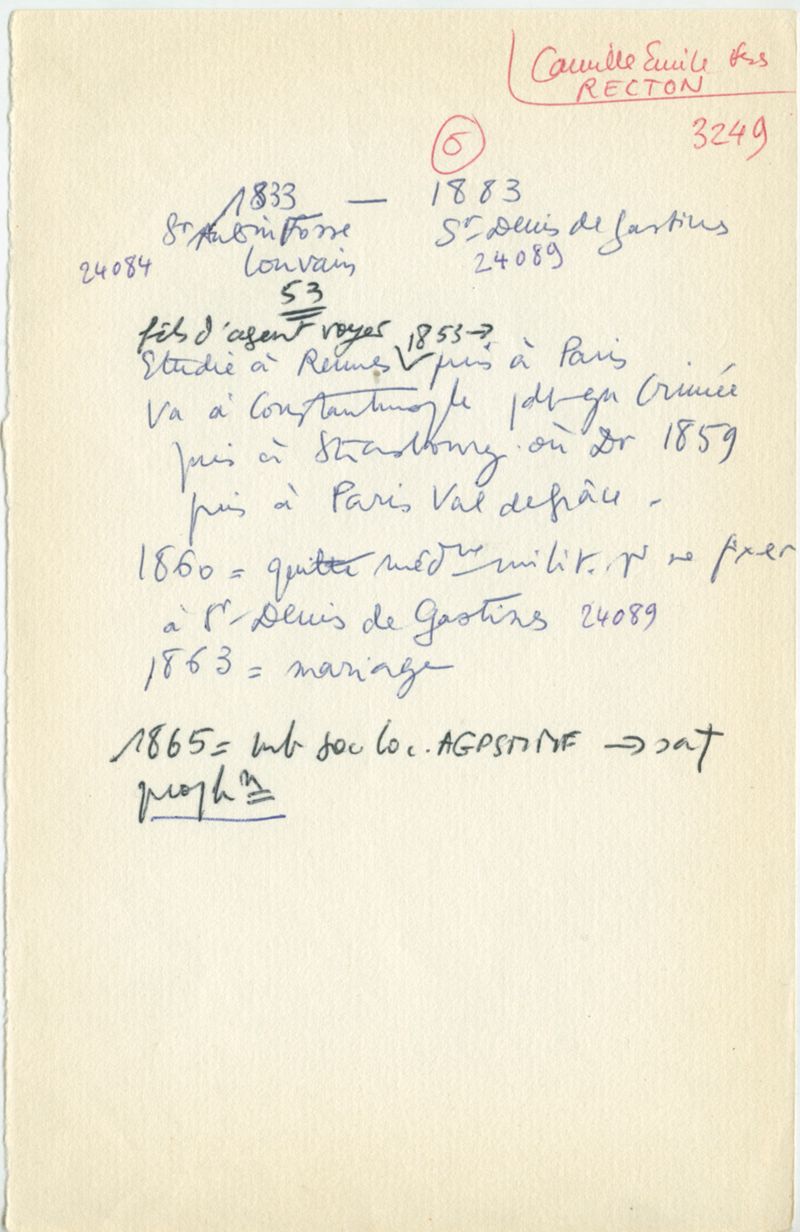 Camille Emile
RECTON
3249
6
1833 — 1883
St Aubin Fosse St-Denis de Gastines
24084 Louvain 24089
53
fils d'agent voyer 1853→
Etudie à Rennes puis à Paris
Va à Constantinople pdt gu Crimée
puis à Strasbourg où Dr 1859
puis à Paris Val de grâce.
1860 = quitte médne milit. pr se fixer
à St-Denis de Gastines 24089
1863 = mariage
1865 = mb soc loc. → sat